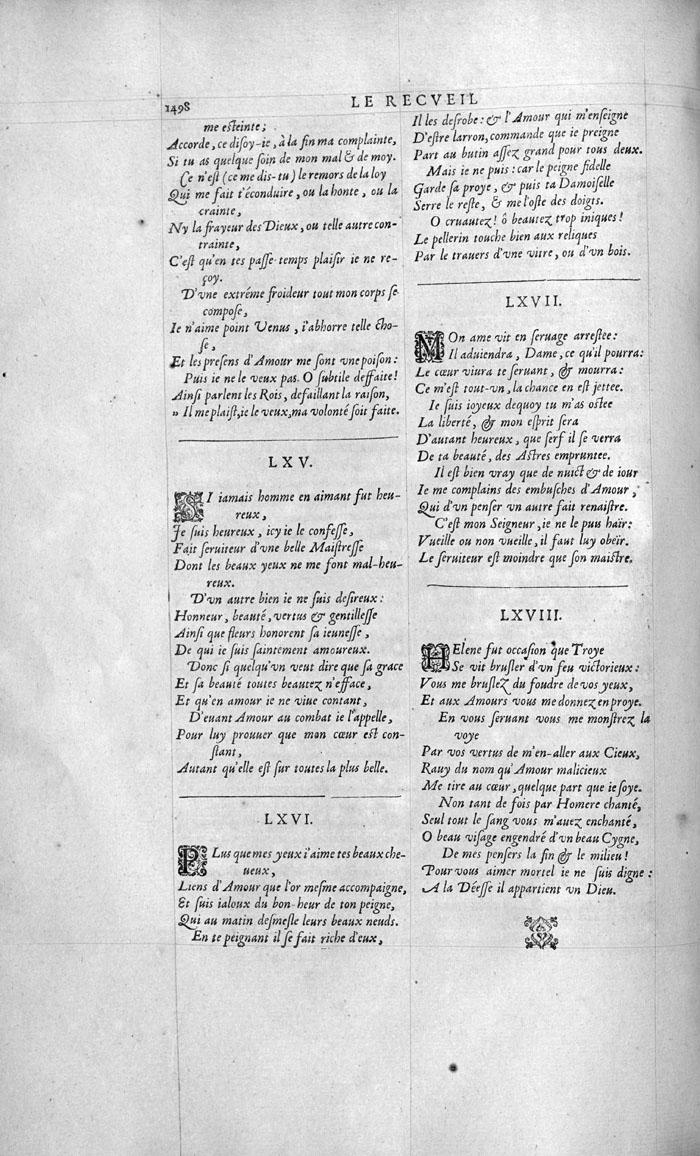 1498
LE RECVEIL
me esteinte;
Accorde, ce disoy-ie, à la fin ma complainte,
Si tu as quelque soin de mon mal & de moy.
Ce n'est (ce me dis-tu) le remors de la loy
Qui me fait t'éconduire, ou la honte, ou la
crainte,
Ny la frayeur des Dieux, ou telle autre con-
trainte,
C'est qu'en tes passe-temps plaisir ie ne re-
çoy.
D'vne extréme froideur tout mon corps se
compose,
Ie n'aime point Venus, i'abhorre telle cho-
se,
Et les presens d'Amour me sont vne poison:
Puis ie ne le veux pas. O subtile deffaite!
Ainsi parlent les Rois, defaillant la raison,
„ Il me plaist, ie le veux, ma volonté soit faite.
LXV.
SI iamais homme en aimant fut heu-
reux,
Je suis heureux, icy ie le confesse,
Fait seruiteur d'vne belle Maistresse
Dont les beaux yeux ne me font mal-heu-
reux.
D'vn autre bien ie ne suis desireux:
Honneur, beauté, vertus & gentillesse
Ainsi que fleurs honorent sa ieunesse,
De qui ie suis saintement amoureux.
Donc si quelqu'vn veut dire que sa grace
Et sa beauté toutes beautez n'efface,
Et qu'en amour ie ne viue contant,
D'euant Amour au combat ie l'appelle,
Pour luy prouuer que mon cœur est con-
stant,
Autant qu'elle est sur toutes la plus belle.
LXVI.
PLus que mes yeux i'aime tes beaux che-
ueux,
Liens d'Amour que l'or mesme accompaigne,
Et suis ialoux du bon-heur de ton peigne,
Qui au matin desmesle leurs beaux neuds.
En te peignant il se fait riche d'eux,
Il les desrobe: & l'Amour qui m'enseigne
D'estre larron, commande que ie preigne
Part au butin assez grand pour tous deux.
Mais ie ne puis: car le peigne fidelle
Garde sa proye, & puis ta Damoiselle
Serre le reste, & me l'oste des doigts.
O cruautez! ô beautez trop iniques!
Le pellerin touche bien aux reliques
Par le trauers d'vne vitre, ou d'vn bois.
LXVII.
MOn ame vit en seruage arrestee:
Il aduiendra, Dame, ce qu'il pourra:
Le cœur viura te seruant, & mourra:
Ce m'est tout-vn, la chance en est jettee.
Ie suis ioyeux dequoy tu m'as ostee
La liberté, & mon esprit sera
D'autant heureux, que serf il se verra
De ta beauté, des Astres empruntee.
Il est bien vray que de nuict & de iour
Ie me complains des embusches d'Amour,
Qui d'vn penser vn autre fait renaistre.
C'est mon Seigneur, ie ne le puis haïr:
Vueille ou non vueille, il faut luy obeïr.
Le seruiteur est moindre que son maistre.
LXVIII.
HElene fut occasion que Troye
Se vit brusler d'vn feu victorieux:
Vous me bruslez du foudre de vos yeux,
Et aux Amours vous me donnez en proye.
En vous seruant vous me monstrez la
voye
Par vos vertus de m'en-aller aux Cieux,
Rauy du nom qu'Amour malicieux
Me tire au cœur, quelque part que ie soye.
Non tant de fois par Homere chanté,
Seul tout le sang vous m'auez enchanté,
O beau visage engendré d'vn beau Cygne,
De mes pensers la fin & le milieu!
Pour vous aimer mortel ie ne suis digne:
A la Déesse il appartient vn Dieu.